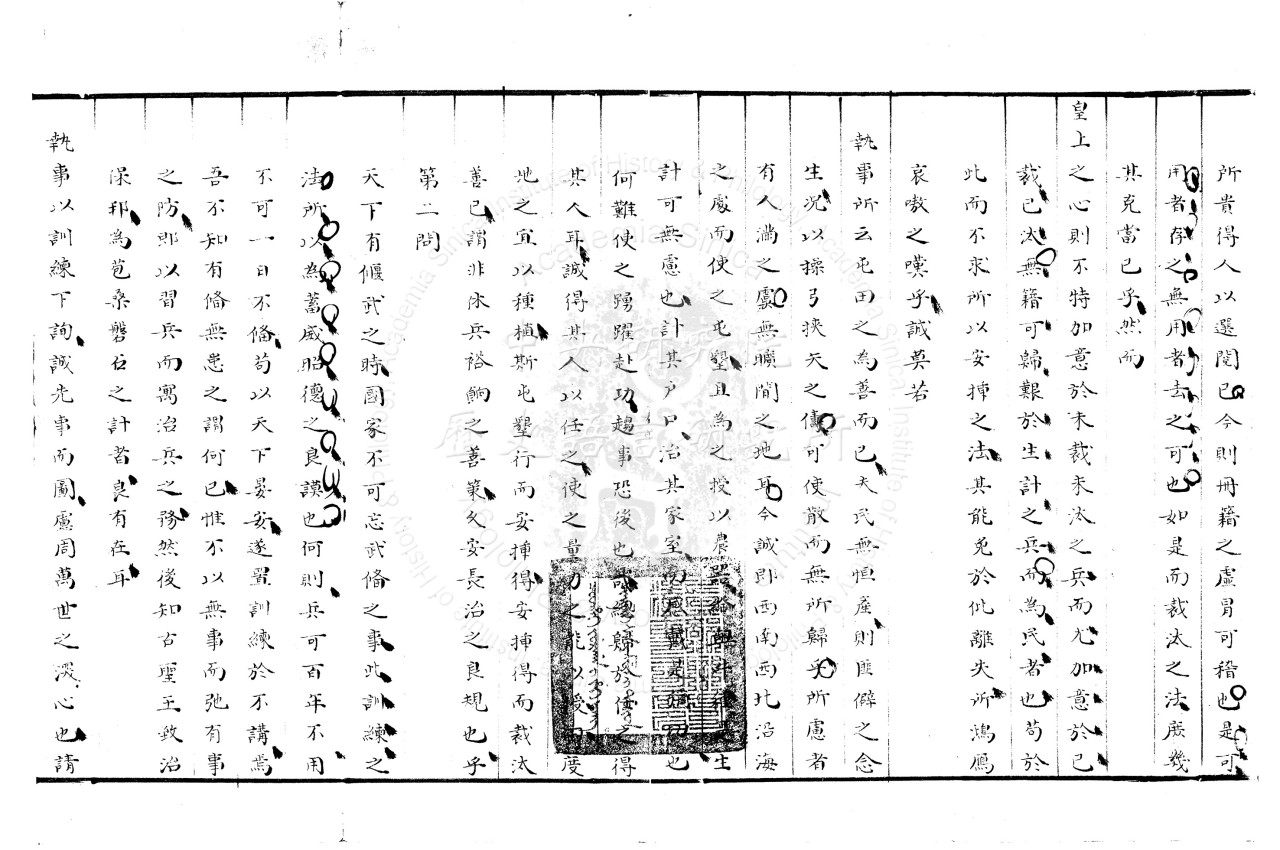 所貴得人以選閱已今則冊籍之虛冐可稽也是可
用者存之無用者去之可也如是而裁汰之法庶幾
其克當已乎然而
皇上之心則不特加意於未裁未汰之兵而尤加意於已
裁已汰無籍可歸艱於生計之兵而為民者也苟於
此而不求所以安揷之法其能免於仳離失所鴻鴈
哀嗷之嘆乎誠莫若
執事所云屯田之為善而已夫民無恒產則匪僻之念
生况以操弓挾矢之儔可使散而無所歸乎所慮者
有人滿之虞無曠閒之地耳今誠即西南西北沿海
之處而使之屯墾且為之授以農器給與牛種是生
計可無慮也計其户口治其家室而感戴是切也
何難使之踴躍赴功趨事恐後也哉總歸於使之得
其人耳誠得其人以任之使之量力之能以授田度
地之宜以種植斯屯墾行而安揷得安揷得而裁汰
善已謂非休兵裕餉之善策久安長治之良規也乎
第二問
天下有偃武之時國家不可忘武俻之事此訓練之
法所以為蓄威昭德之良謨也何則兵可百年不用
不可一日不俻苟以天下晏安遂置訓練於不講焉
吾不知有俻無患之謂何已惟不以無事而弛有事
之防即以習兵而寓治兵之務然後知古聖王致治
保邦為苞桑磐石之計者良有在耳
執事以訓練下詢誠先事而圖慮周萬世之深心也請